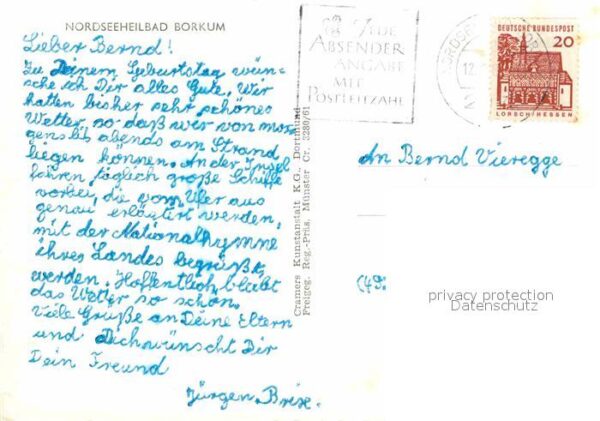 NORDSEEHEILBAD BORKUM
Lieber Bernd!
Zu Deinem Geburtstag wün-
sche ich Dir alles Gute. Wir
hatten bisher sehr schönes
Wetter, so daß wir von mor-
gens bis abends am Strand
liegen können. An der Insel
fahren täglich große Schiffe
vorbei, die vom Ufer aus
genau erläutert werden,
mit der Nationalhymne
ihres Landes begrüßt
werden. Hoffentlich bleibt
das Wetter so schön.
Viele Grüße an Deine Eltern
und Dich wünscht Dir
Dein Freund
Jürgen Brixe.
Cramers Kunstanstalt K.G., Dortmund
Freigeg. Reg.-Präs. Münster Cr. 3280/61
JEDE
ABSENDER
ANGABE
MIT
POSTLEITZAHL
12.
DEUTSCHE BUNDESPOST
20
LORSCH/HESSEN
An Bernd Vieregge
(49
privacy protection
Datenschutz